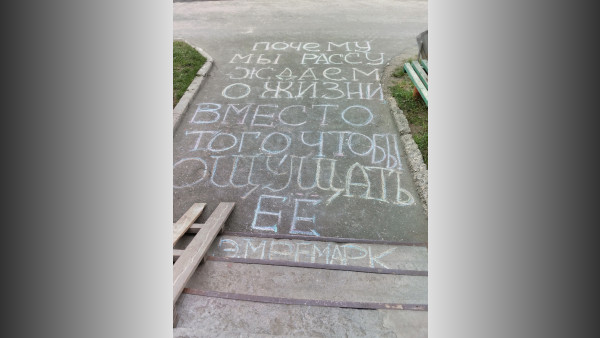 ПОЧЕМУ
МЫ РАССУ
ЖДАЕМ
О ЖИЗНИ
ВМЕСТО
ТОГО ЧТОБЫ
ОЩУЩАТЬ
ЕЁ
Э.М РЕМАРК